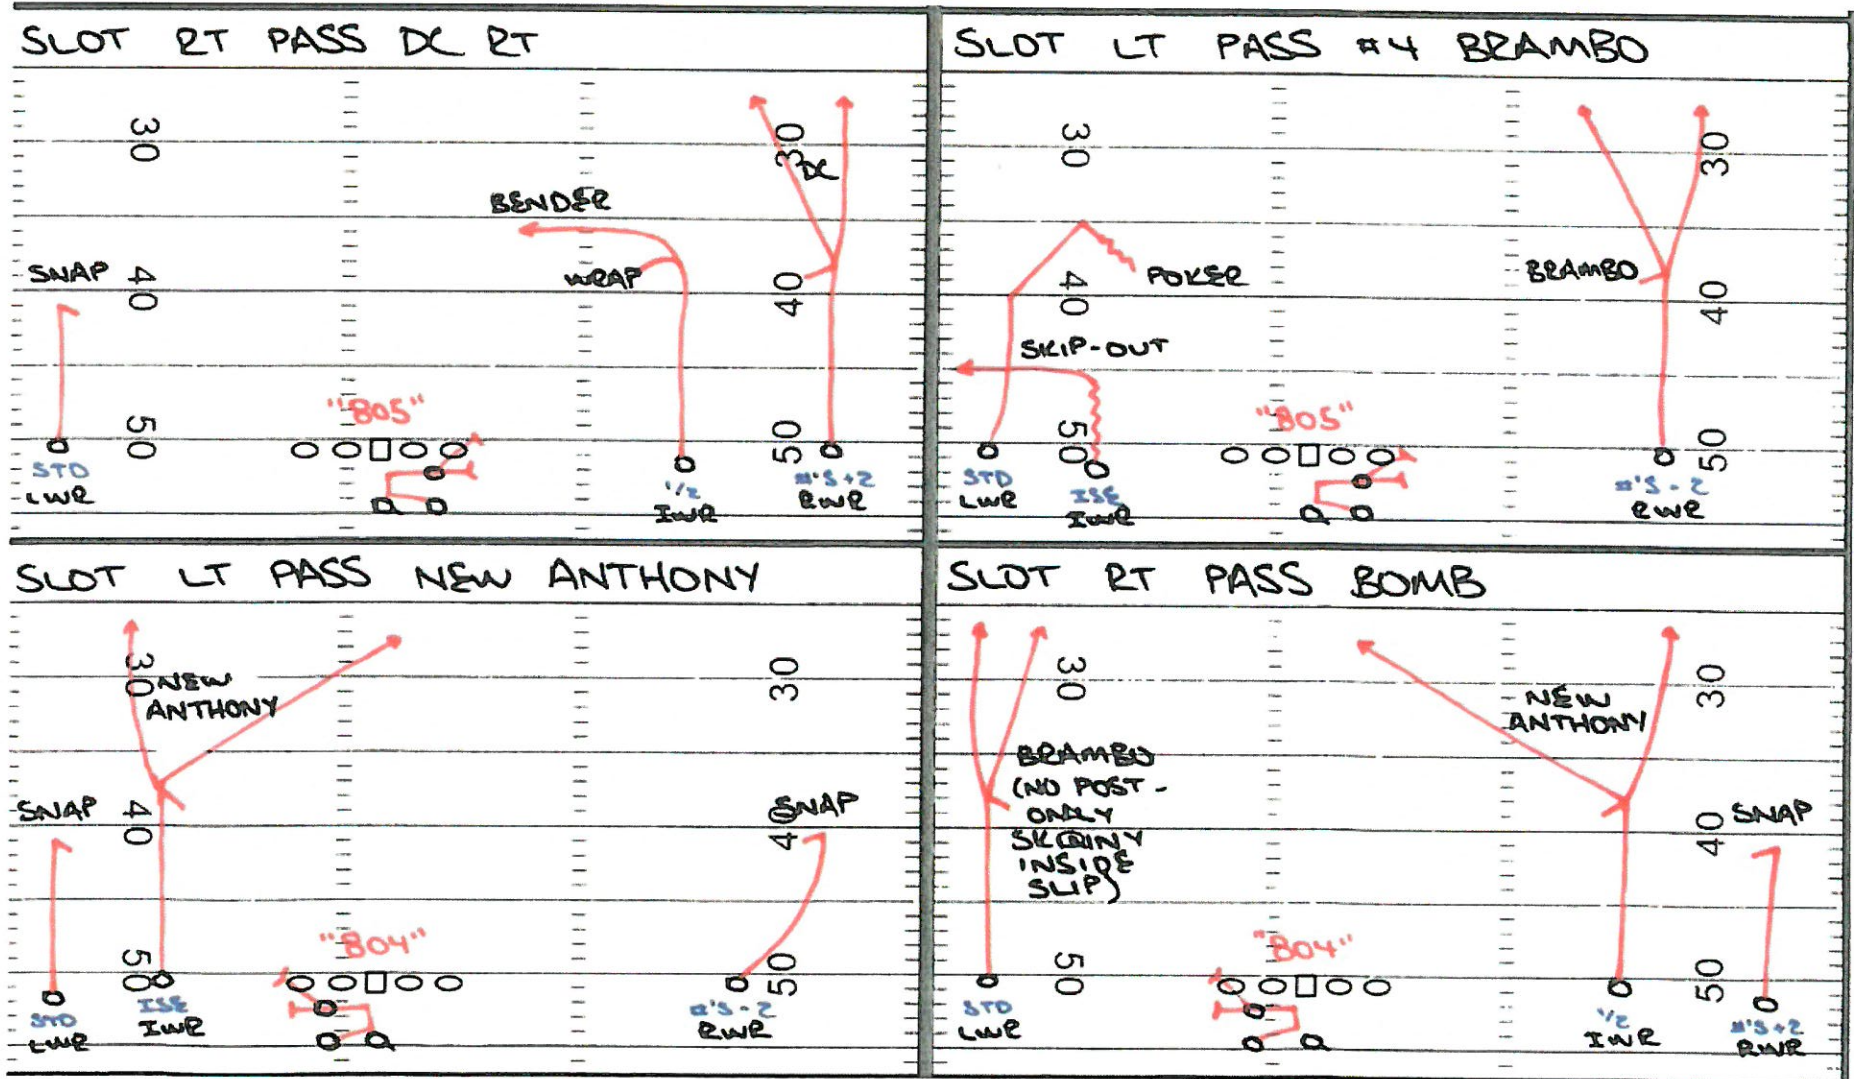 SLOT RT PASS DC RT
30
30
DC
BENDER
SNAP
WRAP
40
40
"805"
50
50
STD
LWR
1/2
IWR
#'S+2
RWR
SLOT LT PASS #4 BRAMBO
30
30
POKER
BRAMBO
40
40
SKIP-OUT
"805"
50
50
STD
LWR
ISE
IWR
#'S-2
RWR
SLOT LT PASS NEW ANTHONY
30
30
NEW
ANTHONY
SNAP
SNAP
40
40
"804"
50
50
STD
LWR
ISE
IWR
#'S-2
RWR
SLOT RT PASS BOMB
30
30
NEW
ANTHONY
BRAMBO
(NO POST -
ONLY
SKINNY
INSIDE
SLIP)
40
SNAP
"804"
50
50
STD
LWR
1/2
IWR
#'S+2
RWR